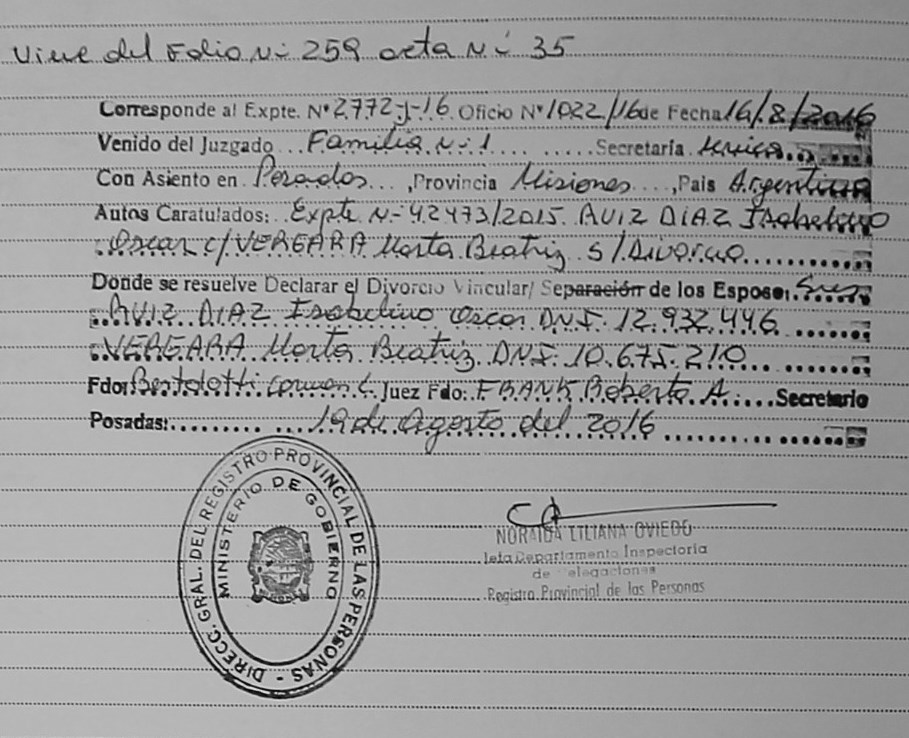 Viene del Folio Nº 259 acta Nº 35
Corresponde al Expte. Nº 2772-J-16 Oficio Nº 1022/16 de Fecha 16/8/2016
Venido del Juzgado... Familia Nº 1 ......Secretaría única...
Con Asiento en Posadas...,Provincia Misiones...,Pais Argentina
Autos Caratulados: Expte Nº 42473/2015. RUIZ DIAZ Isabelino
Oscar c/VERGARA Marta Beatriz S/Divorcio...........
Donde se resuelve Declarar el Divorcio Vincular/ Separación de los Esposos: Sres
RUIZ DIAZ Isabelino Oscar DNI. 12.932.446
VERGARA Marta Beatriz. DNI. 10.675.210
Fdo: Bertolotti Carmen C. Juez Fdo: FRANK Roberto A.....Secretario
Posadas:......... ....19 de Agosto del 2016 ................
DIRECC. GRAL. DEL REGISTRO PROVINCIAL DE LAS PERSONAS -
MINISTERIO DE GOBIERNO
NORAIDA LILIANA OVIEDO
Jefa Departamento Inspectoria
de Delegaciones
Registro Provincial de las Personas